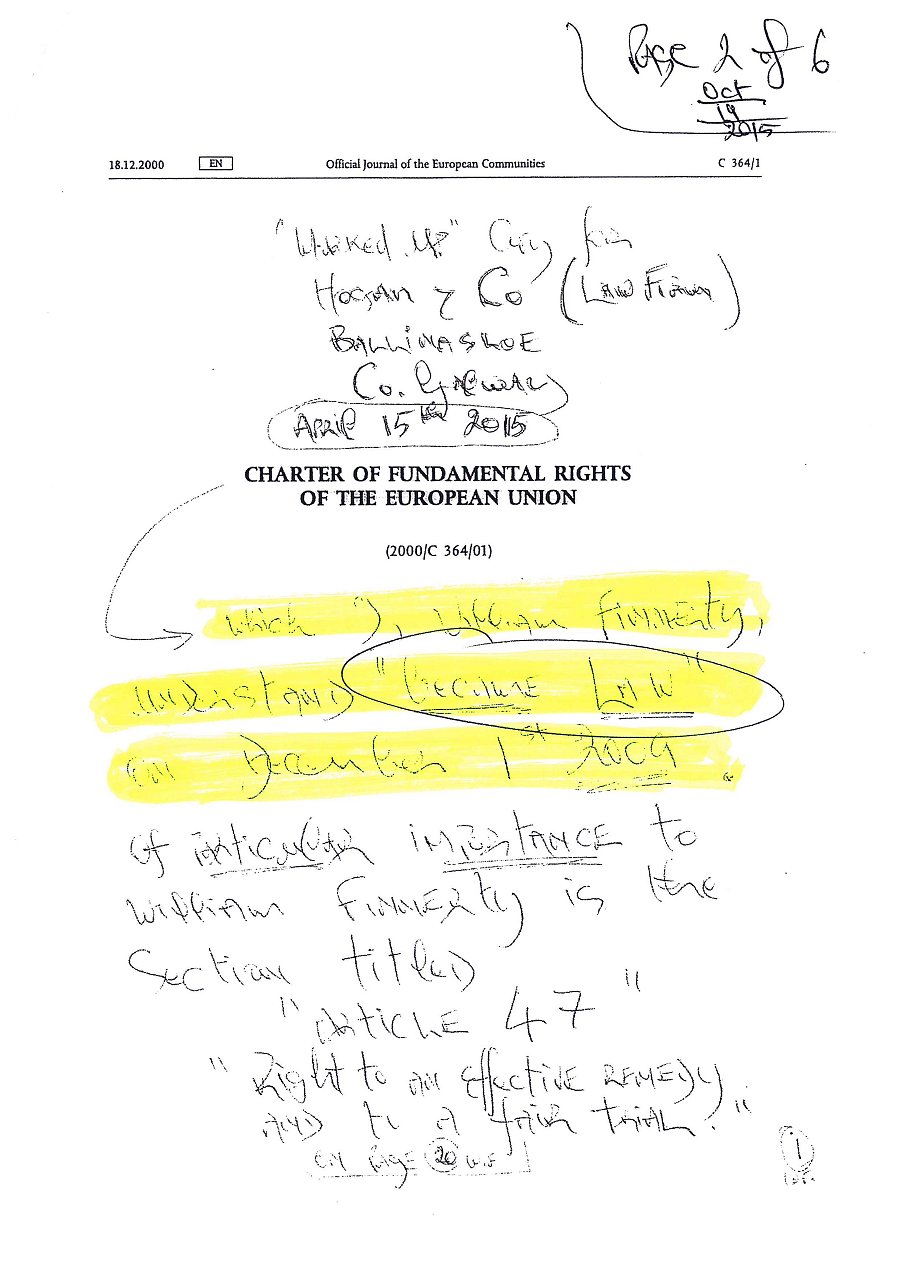 Page 2 of 6
Oct
19
2015
18.12.2000 EN Official Journal of the European Communities C 364/1
"Marked Up" Copy for
Hogan & Co (Law Firm)
BALLINASLOE
Co. Galway
APRIL 15th 2015
CHARTER OF FUNDAMENTAL RIGHTS
OF THE EUROPEAN UNION
(2000/C 364/01)
which I, William Finnerty,
understand "became LAW"
on December 1st 2009.
Of particular importance to
William Finnerty is the
Section titled
"ARTICLE 47"
"Right to an effective REMEDY
AND to a fair trial."
on Page 20
1